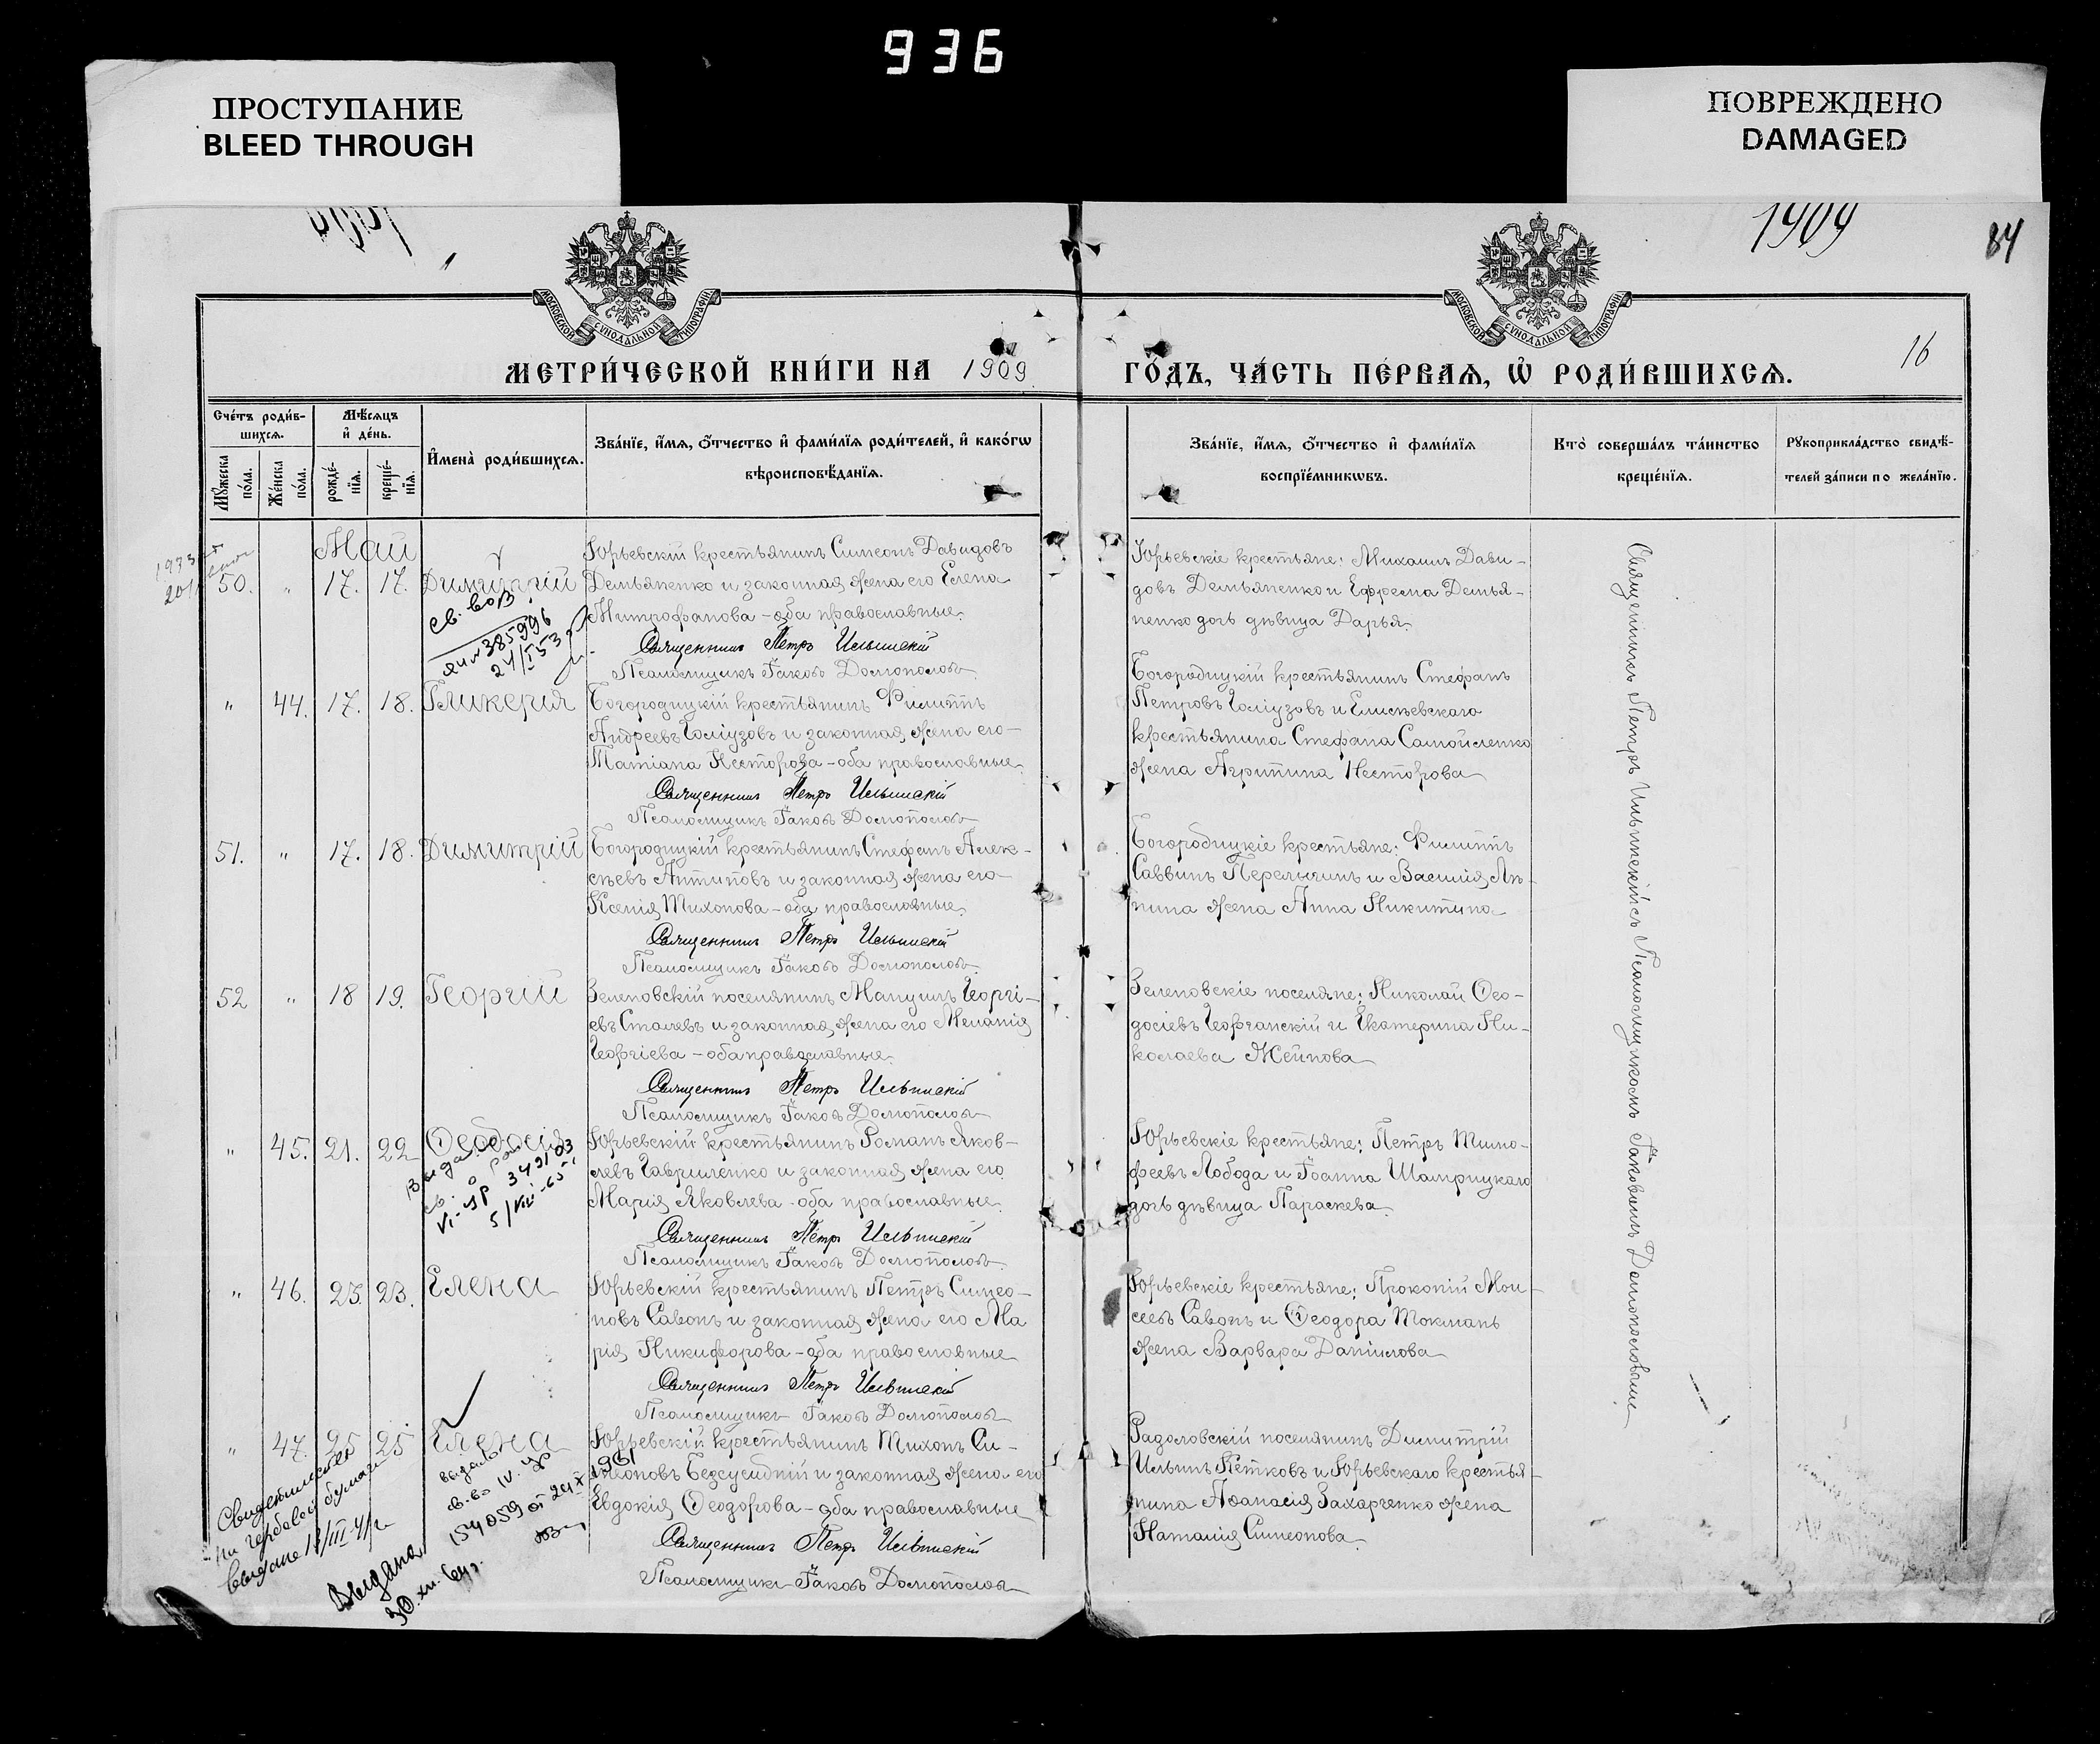 936
ПРОСТУПАНИЕ
BLEED THROUGH
ПОВРЕЖДЕНО
DAMAGED
1909
84
МОСКОВСКОЙ СѴНОДАЛЬНОЙ ТИПОГРАФІИ
МОСКОВСКОЙ СѴНОДАЛЬНОЙ ТИПОГРАФІИ
16
МЕТРИ́ЧЕСКОЙ КНИ́ГИ НА 1909 ГО́ДЪ, ЧА́СТЬ ПЕ́РВАѦ, Ѡ҆ РОДИ́ВШИХСѦ.
Сче́тъ роди́в-
шихсѧ.
Мѣ́сѧцъ
и҆ де́нь.
Мꙋ́жеска
по́ла.
Же́нска
по́ла.
рожде́-
нїѧ.
креще́-
нїѧ.
И҆мена̀ роди́вшихсѧ.
Зва́нїе, и҆́мѧ, ѻ҆́тчество и҆ фами́лїѧ роди́телей, и҆ како́гѡ
вѣроисповѣ́данїѧ.
Зва́нїе, и҆́мѧ, ѻ҆́тчество и҆ фами́лїѧ
воспрїе́мникѡвъ.
Кто̀ соверша́лъ та́инство
креще́нїѧ.
Рꙋкоприкла́дство свидѣ́-
телей за́писи по жела́нїю.
Май
50. " 17. 17. Димитрій
св. воз
яи № 385996
24/I 53
Юрьевскій крестьянинъ Симеонъ Давидовъ
Демьяненко и законная жена его Елена
Митрофанова - оба православные.
Священникъ Петръ Ильинскій
Псаломщикъ Іаковъ Домополовъ
Юрьевскіе крестьяне: Михаилъ Дави-
довъ Демьяненко и Ефрема Демья-
ненко дочь дѣвица Дарья.
" 44. 17. 18. Гликерія
Богородицкій крестьянинъ Филиппъ
Андреевъ Голіузовъ и законная жена его
Татіана Несторова - оба православные.
Священникъ Петръ Ильинскій
Псаломщикъ Іаковъ Домополовъ
Богородицкій крестьянинъ Стефанъ
Петровъ Голіузовъ и Елисѣевскаго
крестьянина Стефана Самойленко
жена Агрипина Несторова
51. " 17. 18. Димитрій
Богородицкій крестьянинъ Стефанъ Алек-
сѣевъ Антиповъ и законная жена его
Ксенія Тихонова - оба православные.
Священникъ Петръ Ильинскій
Псаломщикъ Іаковъ Домополовъ
Богородицкіе крестьяне: Филиппъ
Саввинъ Перелыгинъ и Василія Ля-
пина жена Анна Никитина
52 " 18 19. Георгій
Зеленовскій поселянинъ Мануилъ Георгі-
евъ Сталевъ и законная жена его Меланія
Георгіева - оба православные.
Священникъ Петръ Ильинскій
Псаломщикъ Іаковъ Домополовъ
Зеленовскіе поселяне: Николай Ѳео-
досіевъ Георганскій и Екатерина Ни-
колаева Жейнова
" 45. 21. 22 Ѳеодосія
VI-ЯР 349183
5/VIII-65
Юрьевскій крестьянинъ Романъ Яков-
левъ Гавриленко и законная жена его
Марія Яковлева - оба православные.
Священникъ Петръ Ильинскій
Псаломщикъ Іаковъ Домополовъ
Юрьевскіе крестьяне: Петръ Тимо-
феевъ Лобода и Іоанна Шамрицкаго
дочь дѣвица Параскева.
" 46. 23. 23. Елена
Юрьевскій крестьянинъ Петръ Симео-
новъ Савонъ и законная жена его Ма
рія Никифорова - оба православные
Священникъ Петръ Ильинскій
Псаломщикъ Іаковъ Домополовъ
Юрьевскіе крестьяне: Прокопій Мои-
сеевъ Савонъ и Ѳеодора Токмань
жена Варвара Даніилова
" 47. 25 25 Елена
Юрьевскій крестьянинъ Тихонъ Си-
меоновъ Безсусідній и законная жена его
Евдокія Ѳеодорова - оба православные
Священникъ Петръ Ильинскій
Псаломщикъ Іаковъ Домополовъ
Радоловскій поселянинъ Димитрій
Ильинъ Пѣтковъ и Юрьевскаго крестья-
нина Аѳанасія Захарченко жена
Наталія Симеонова.
Свидетельство
на гербовой бумаге
выдано
Выдана
Священникъ Петръ Ильинскій съ Псаломщикомъ Іаковомъ Домополовымъ